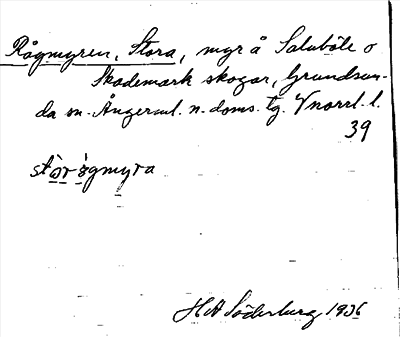 Rågmyren, Stora, myr å Salubäle o
Skademark skogar, Grundsun-
da sn. Ångerml. n. doms. tg. Vnorrl. l.
39
HA Söderburg 1936